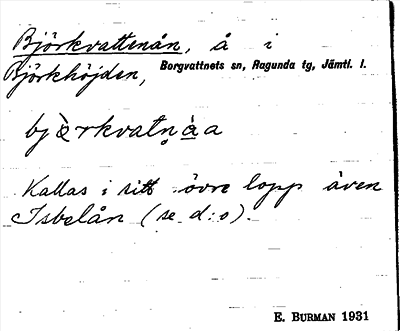 Björkvattenån, å i
Björkhöjden, Borgvattnets sn, Ragunda tg, Jämtl. l.
bjèrkvatṇàa
Kallas i sitt övre lopp även
Isbelån (se d:o).
E. BURMAN 1931